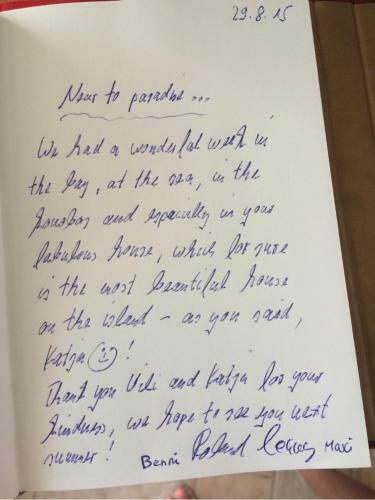 29.8.15
Near to paradise...
We had a wonderful week in
the bay, at the sea, in the
and especially in your
fabulous house, which for sure
is the most beautiful house
on the island - as you said,
Katja ☺!
Thank you Uli and Katja for your
kindness, we hope to see you next
summer!
Benni Roland Maxi